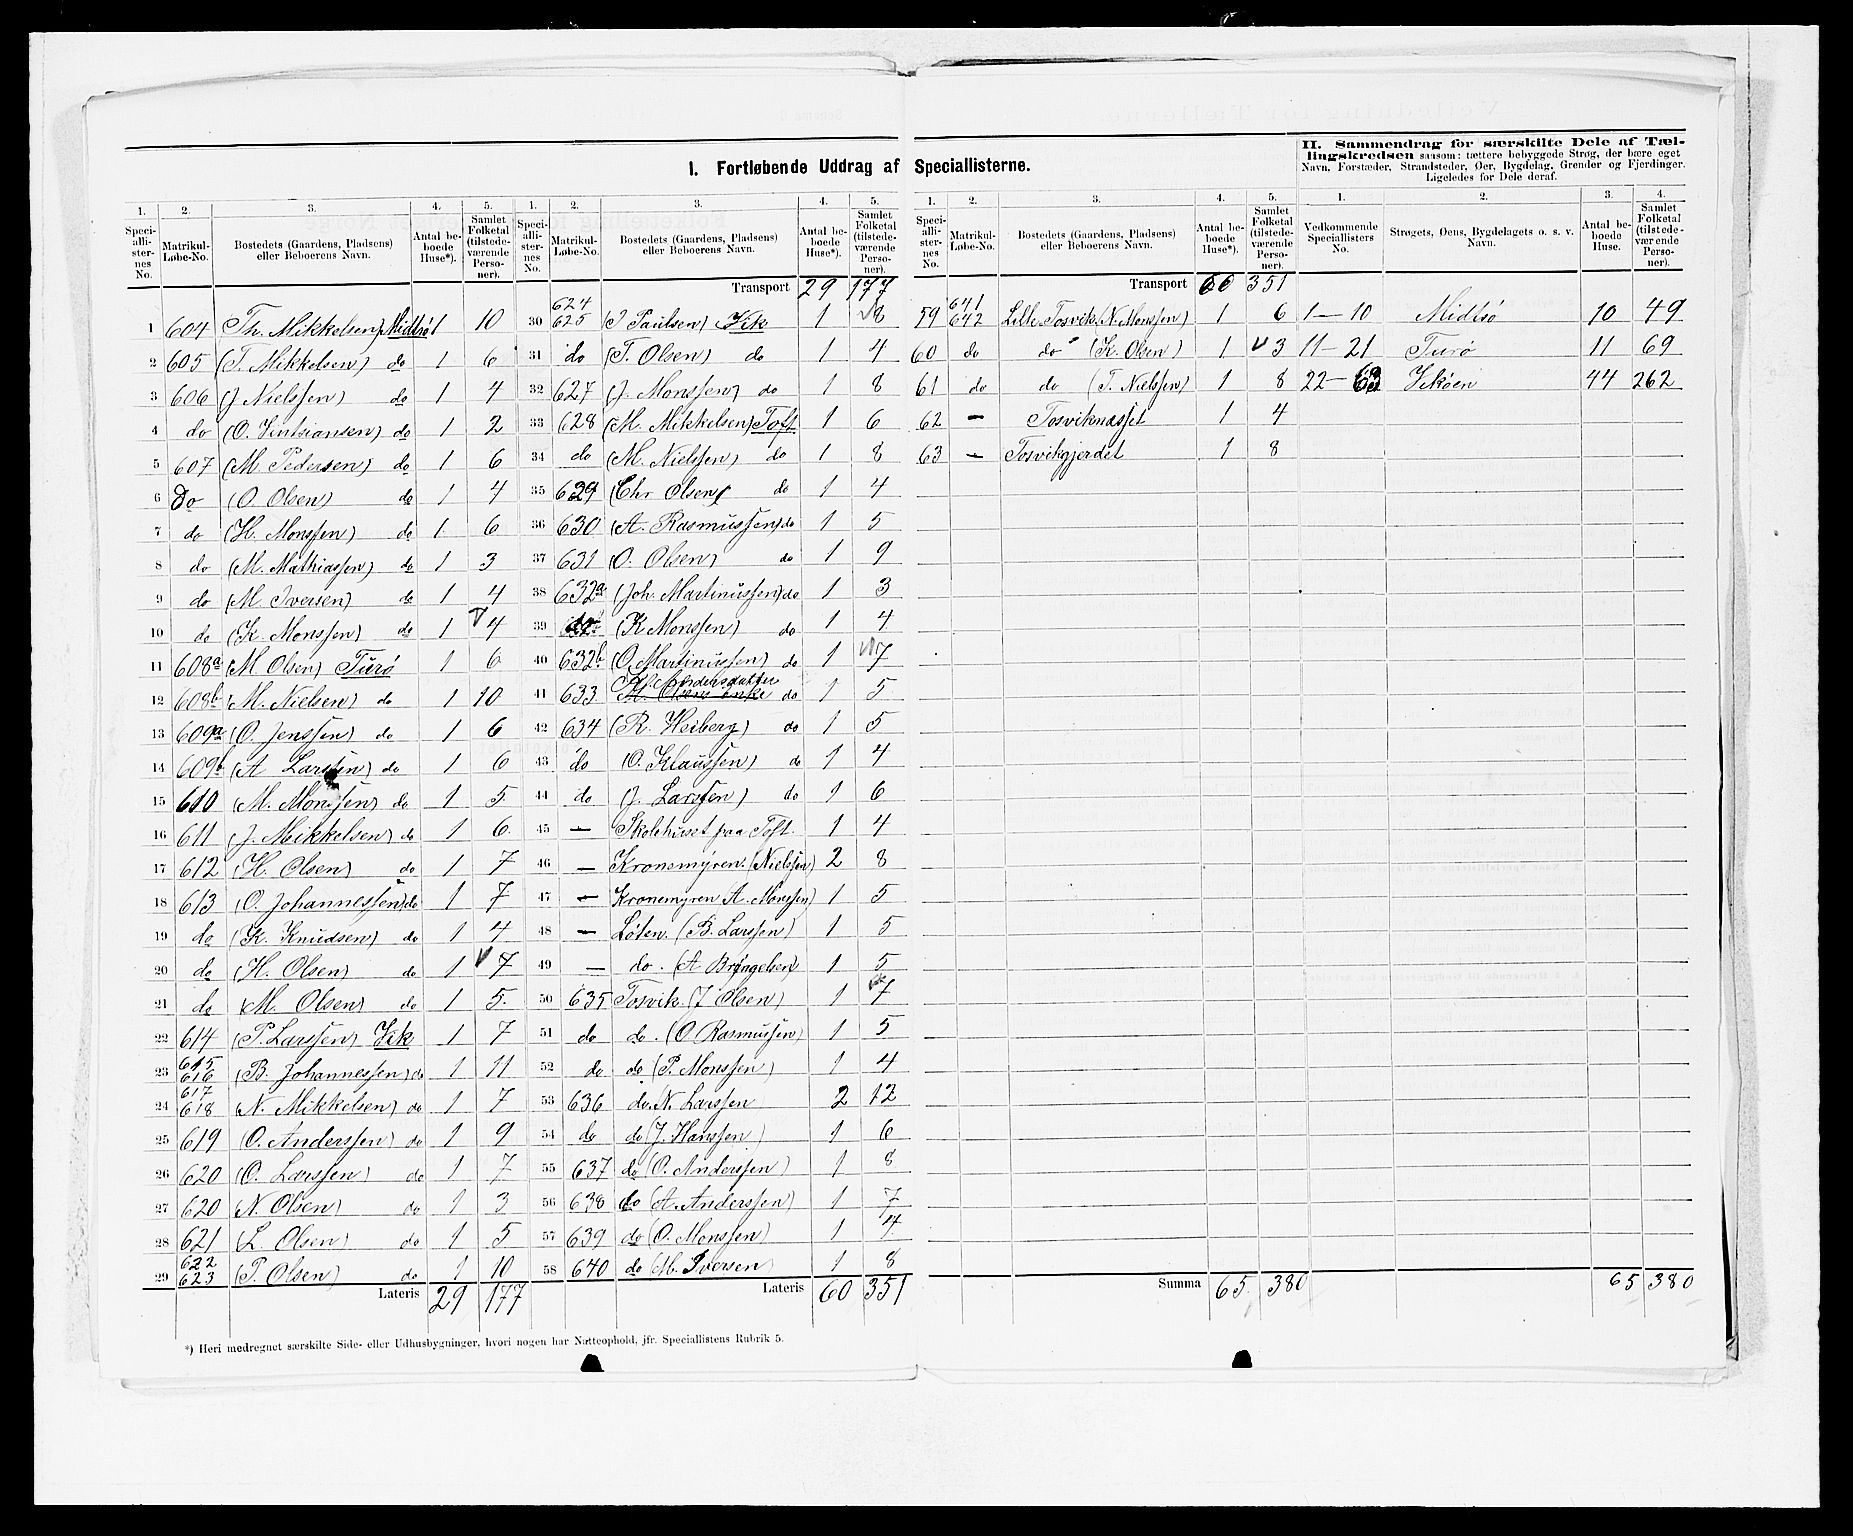 I. Fortløbende Uddrag af Speciallisterne.
II. Sammendrag for særskilte Dele af Tæl-
lingskredsen saasom: tættere bebyggede Strøg, der bære eget
Navn, Forstæder, Strandsteder, Øer, Bygdelag, Grender og Fjerdinger.
Ligeledes for Dele deraf.
1. 2. 3. 4. 5. 1. 2. 3. 4. 5. 1. 2. 3. 4. 5. 1. 2. 3. 4.
Speci-alli-ster-nes No. Matrikul-Løbe-No. Bostedets (Gaardens, Pladsens) eller Beboerens Navn. Antal be-boede Huse*). Samlet Folketal (tilstede-værende Perso-ner).
Speci-alli-ster-nes No. Matrikul-Løbe-No. Bostedets (Gaardens, Pladsens) eller Beboerens Navn. Antal be-boede Huse*). Samlet Folketal (tilstede-værende Perso-ner).
Speci-alli-ster-nes No. Matrikul-Løbe-No. Bostedets (Gaardens, Pladsens) eller Beboerens Navn. Antal be-boede Huse*). Samlet Folketal (tilstede-værende Perso-ner).
Vedkommende Speciallisters No. Strøgets, Øens, Bygdelagets o. s. v. Navn. Antal be-boede Huse. Samlet Folketal (tilstede-værende Perso-ner).
1 604 Th. Mikkelsen) Midtsø 1 10
2 605 (T. Mikkelsen) do 1 6
3 606 (J Nielssen) do 1 4
4 do (O. ) do 1 2
5 607 (M. Pedersen) do 1 6
6 do (O. Olsen) do 1 4
7 do (H. Monssen) do 1 6
8 do (M. Mathiassen) do 1 3
9 do (M. Iversen) do 1 4
10 do (K Monssen) do 1 4
11 608a (M. Olsen) Turø 1 6
12 608b (M. Nielsen) do 1 10
13 609a (O. Jenssen) do 1 6
14 609b (A Larssen) do 1 6
15 610 (M. Monssen) do 1 5
16 611 (J. Mikkelsen) do 1 6
17 612 (H. Olsen) do 1 7
18 613 (O. Johannessen) do 1 7
19 do (K. Knudsen) do 1 4
20 do (H. Olsen) do 1 7
21 do (M. Olsen) do 1 5
22 614 (P. Larssen) Vik 1 7
23 615 616 (B. Johannessen) do 1 11
24 617 618 (N. Mikkelsen) do 1 7
25 619 (O. Anderssen) do 1 9
26 620 (O. Larssen) do 1 7
27 620 (N. Olsen) do 1 3
28 621 (L. Olsen) do 1 5
29 622 623 (P. Olsen) do 1 10
Lateris 29 177
Transport 29 177
30 624 625 (P Paulsen) Vik 1 8
31 do (T. Olsen) do 1 4
32 627 (J. Monssen) do 1 8
33 628 (M. Mikkelsen) Toft 1 6
34 do (M. Nielssen) do 1 8
35 629 (Chr Olsen) do 1 4
36 630 (A. Rasmussen) do 1 5
37 631 (O. Olsen) do 1 9
38 632a (Joh. Martinussen) do 1 3
39 do (K Monssen) do 1 4
40 632b (O. Martinussen) do 1 7
41 633 do 1 5
42 634 (R. Heiberg) do 1 5
43 do (O. Klaussen) do 1 4
44 do (J. Larssen) do 1 6
45 — Skolehuset paa Toft. 1 4
46 — Kronemyren. (Nielssen) 2 8
47 — Kronemyren A. Monssen) 1 5
48 — Løten. (B. Larssen) 1 5
49 — do. (A Bringelsen) 1 5
50 635 Tosvik. (J Olsen) 1 7
51 do do. (O Rasmussen) 1 5
52 do do (P. Monssen) 1 4
53 636 do. N. Larssen 2 12
54 do do (J. Hanssen) 1 6
55 637 do (O. Anderssen) 1 8
56 638 do (A. Anderssen) 1 7
57 639 do (O. Monssen) 1 4
58 640 do (M. Iversen) 1 8
Lateris 60 351
Transport 60 351
59 641 642 Lille Tosvik (N. Monssen) 1 6
60 do do (K. Olsen) 1 3
61 do do (T. Nielssen) 1 8
62 — Tosviknæsset 1 4
63 — Tosvikgjerdet 1 8
Summa 65 380
1—10 Midtsø 10 49
11—21 Turø 11 69
22—63 Vikøen 44 262
65 380
*) Heri medregnet særskilte Side- eller Udhusbygninger, hvori nogen har Natteophold, jfr. Speciallistens Rubrik 5.